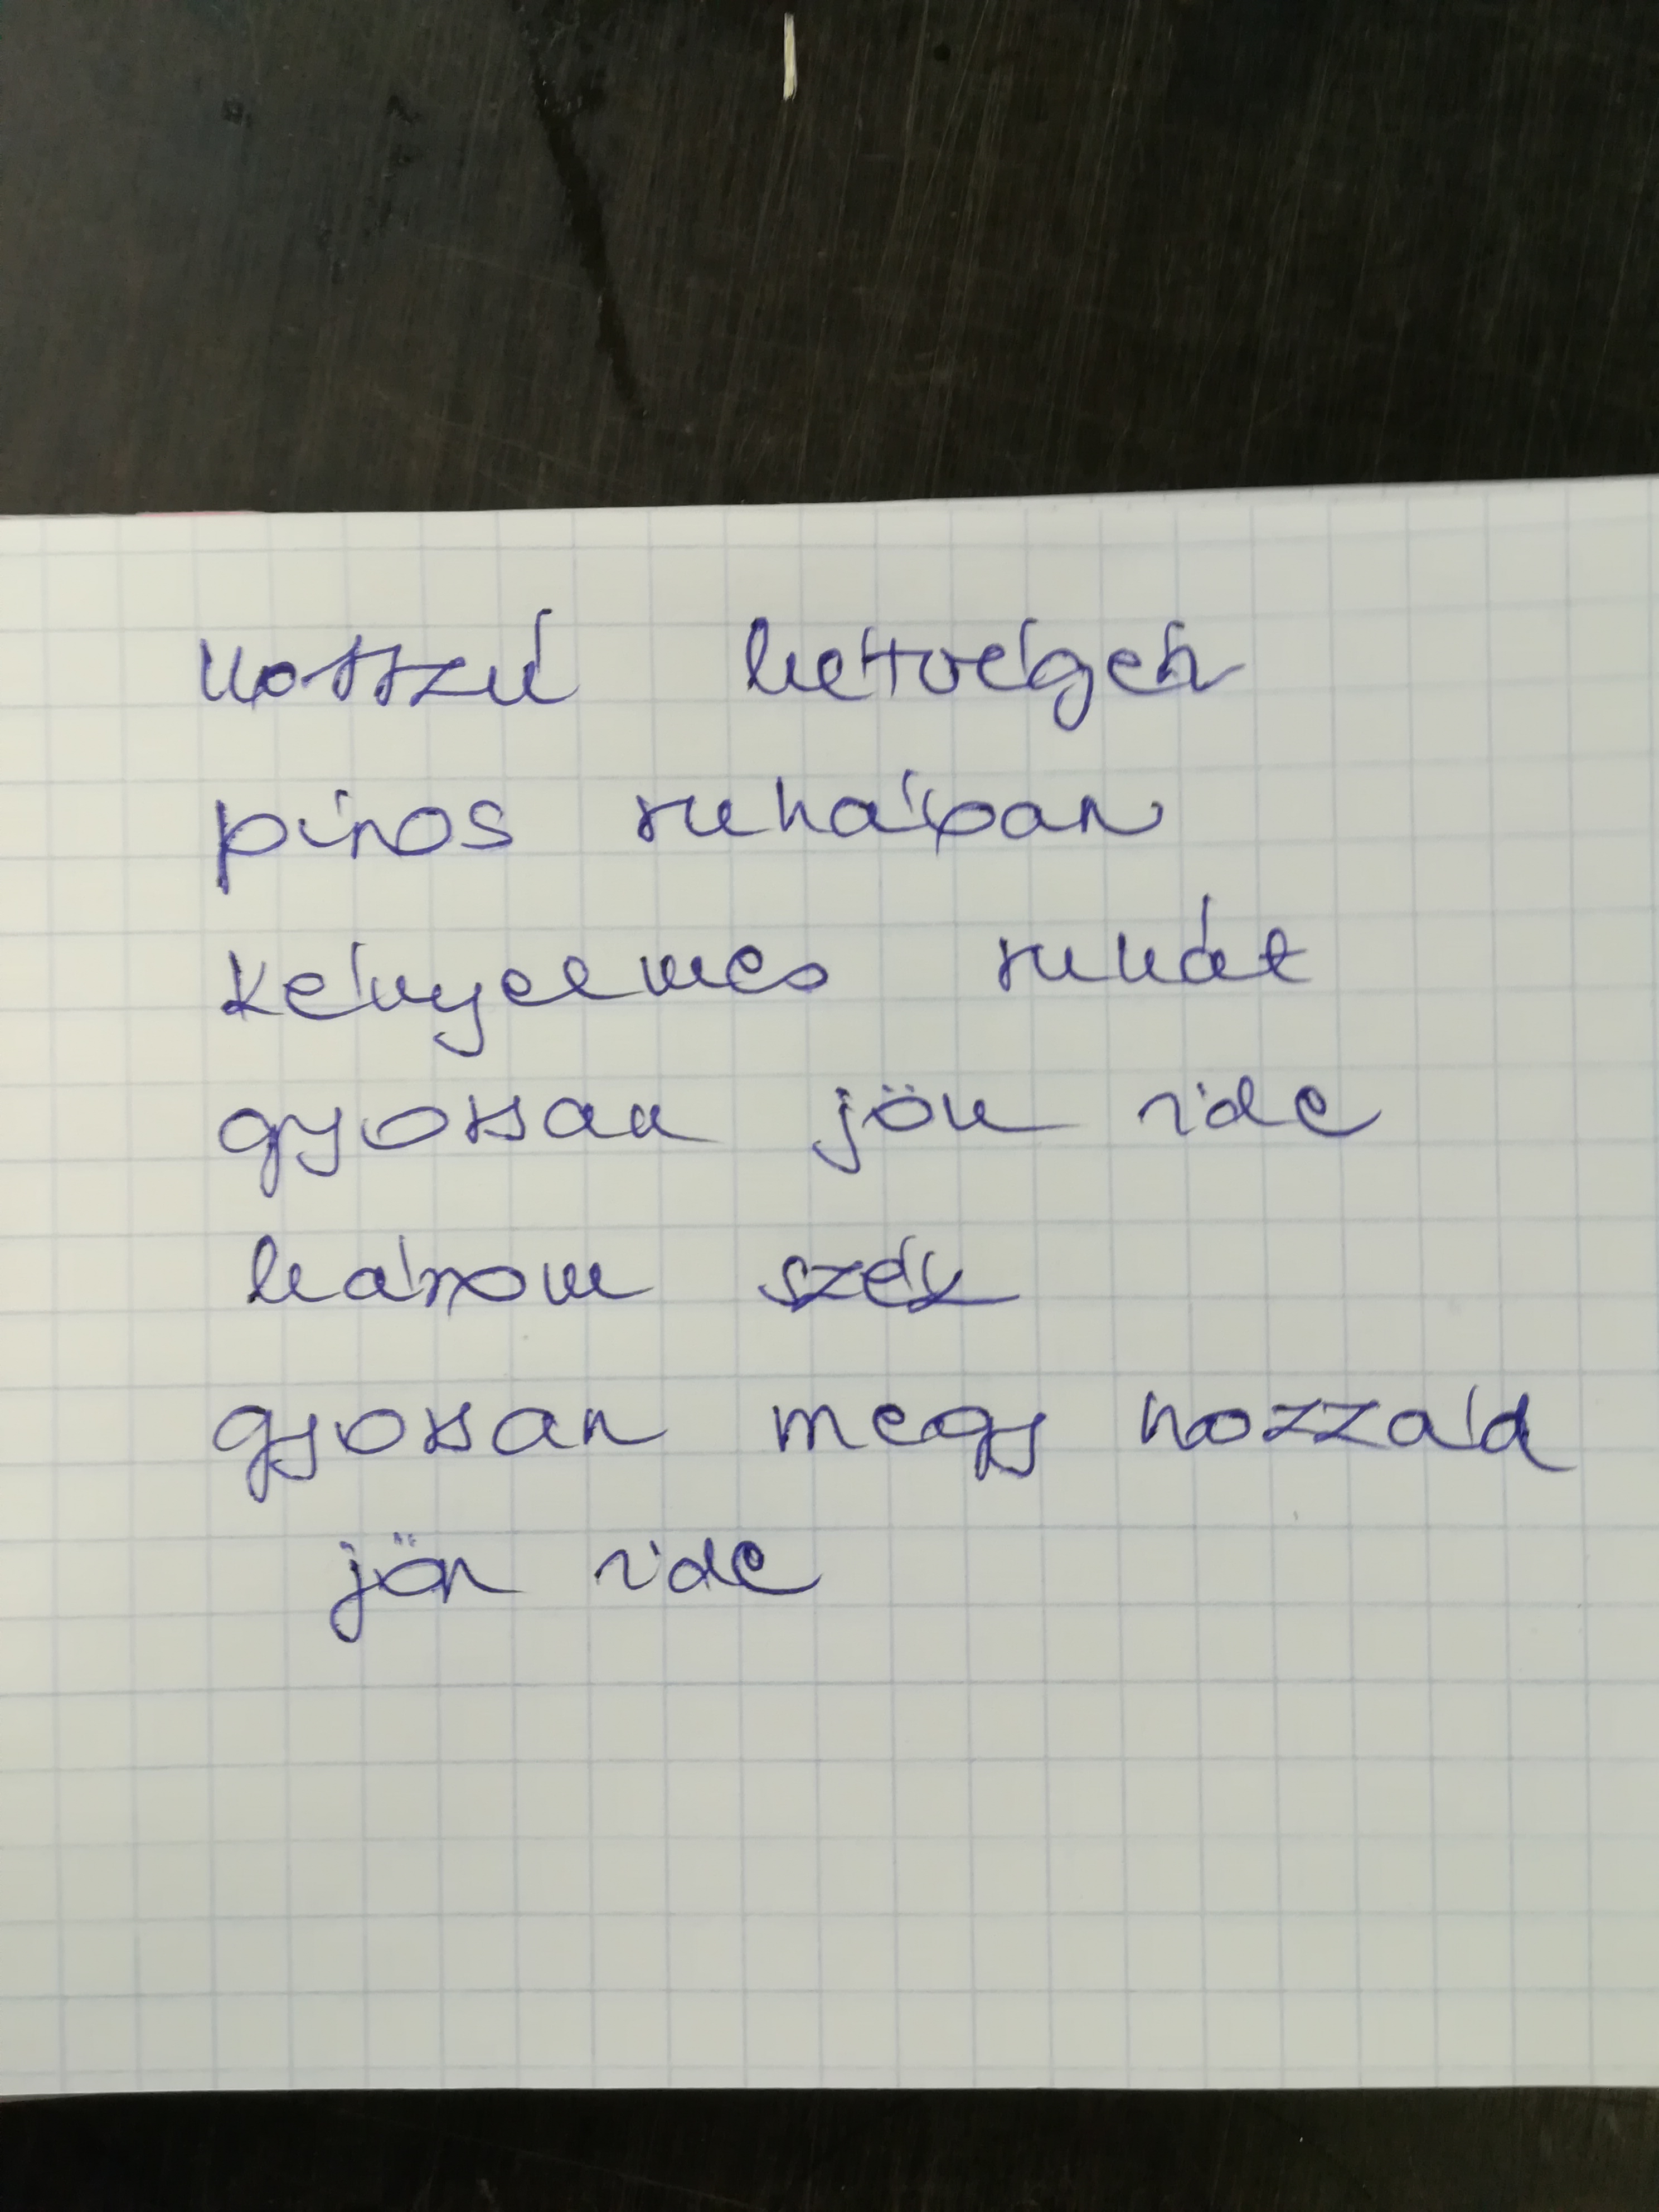 Hosszú hétvégén
piros ruhában
kényelmes ruhát
gyorsan jön ide
három szék
gyorsan megy hozzád
jön ide